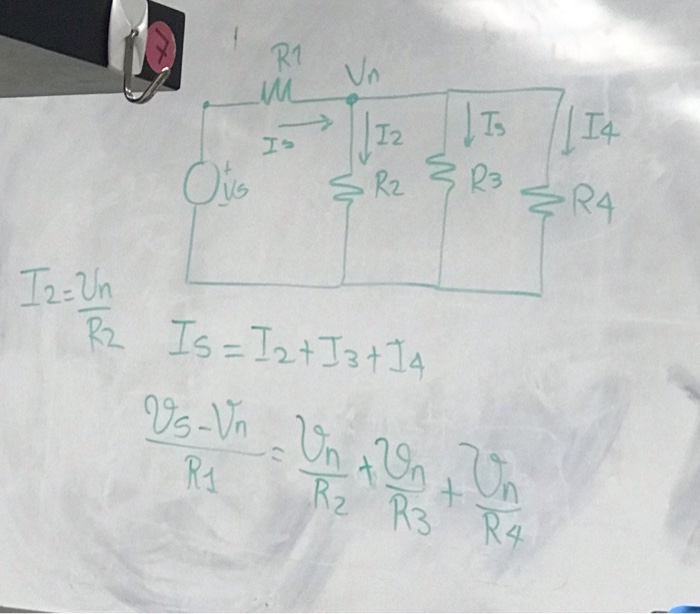 7
R1
Vn
Is
I2
I3
I4
+
Vs
-
R2
R3
R4
I2=Vn/R2
Is=I2+I3+I4
Vs-Vn/R1 = Vn/R2 + Vn/R3 + Vn/R4